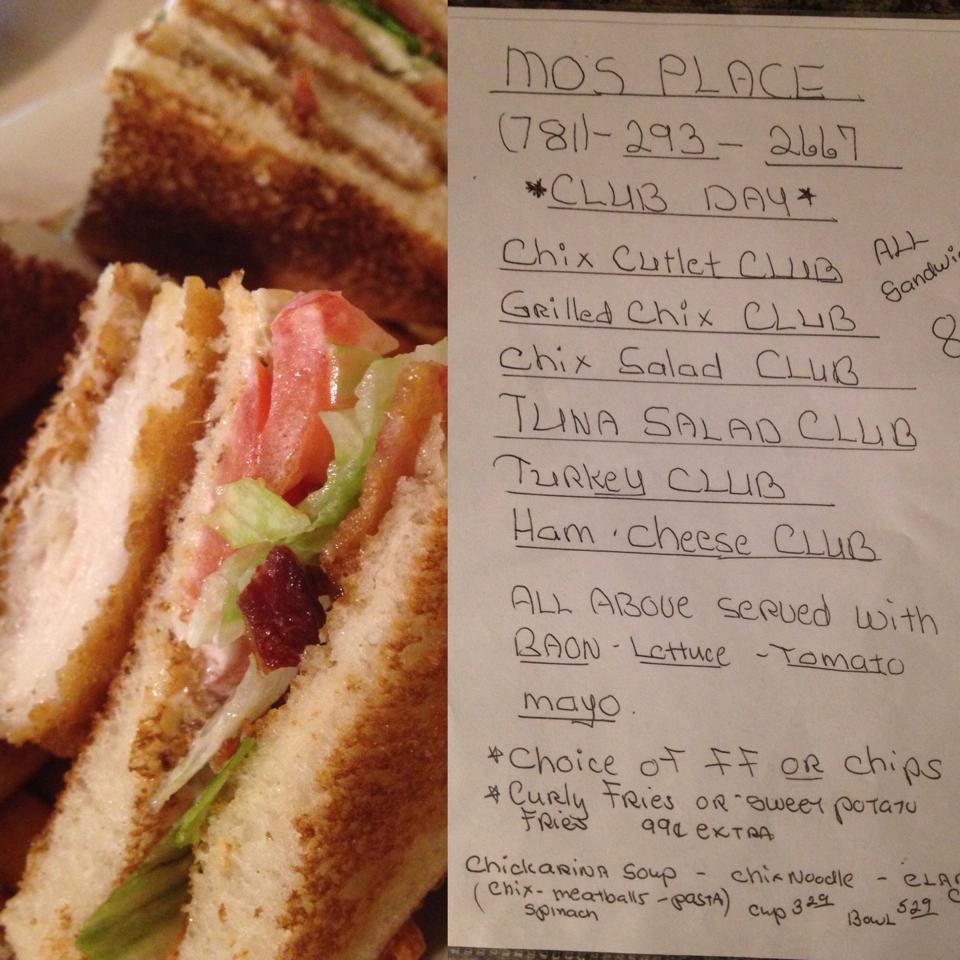 MO'S PLACE
(781)-293-2667
*CLUB DAY*
Chix Cutlet CLUB
ALL
Sandwi
Grilled Chix CLUB
8
Chix Salad CLUB
TUNA SALAD CLUB
Turkey CLUB
Ham · cheese CLUB
ALL ABOVE served with
BAON - Lettuce - Tomato
mayo.
*Choice of FF OR chips
*Curly Fries OR sweet potato
Fries 99¢ EXTRA
Chickarina Soup - chix Noodle - CLA
(Chix - meatballs - pasta) cup 3.29 Bowl 5.29 C
Spinach